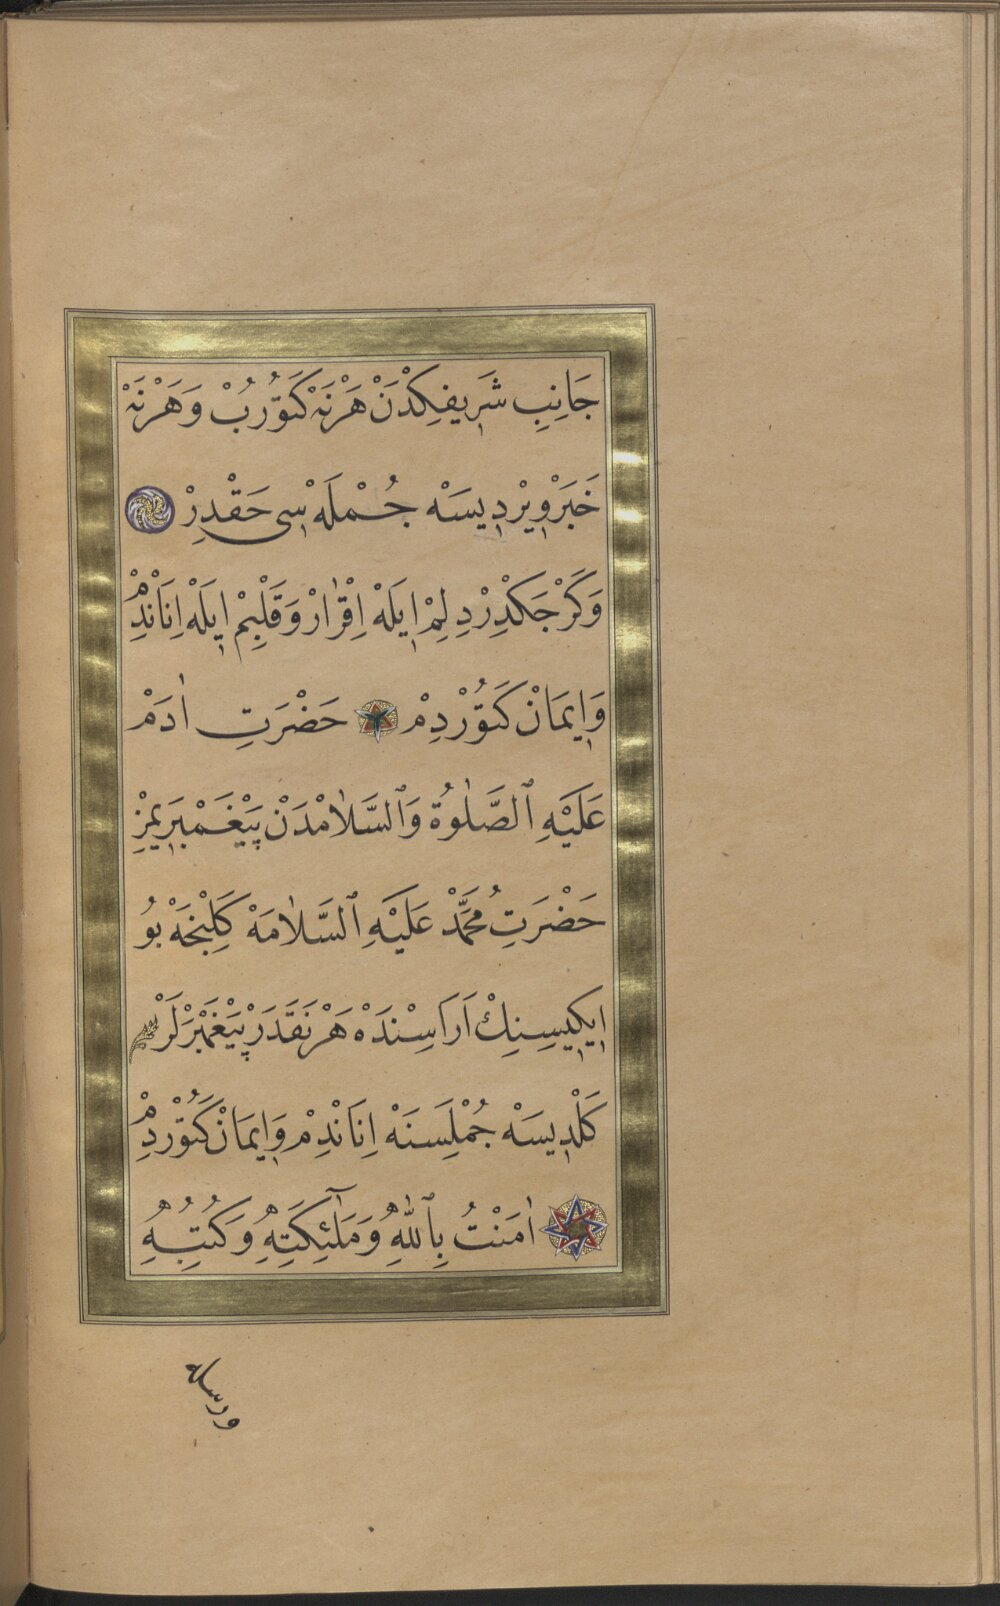 جَانِبِ شَرِيفِكْدَنْ هَرْنَهْ كَتُوْرُبْ وَهَرْنَهْ
خَبَرْ وِيْرْدِيسَهْ جُمْلَهْ سِى حَقْدِرْ
وَكَرْجَكْدِرْ دِلِمْ اِيلَهْ اِقْرَارْ وَقَلْبِمْ اِيلَهْ اِنَانْدِمْ
وَاِيمَانْ كَتُوْرْدِمْ حَضْرَتِ اٰدَمْ
عَلَيْهِ ٱلصَّلٰوةُ وَٱلسَّلَامْدَنْ پَيْغَمْبَرِيمِزْ
حَضْرَتِ مُحَمَّدْ عَلَيْهِ ٱلسَّلَامَهْ كَلِنْجَهْ بُو
اِيكِيسِنِكْ اَرَاسِنْدَهْ هَرْنَقَدَرْ پَيْغَمْبَرْلَرْ
كَلْدِيسَهْ جُمْلَسِنَهْ اِنَانْدِمْ وَاِيمَانْ كَتُوْرْدِمْ
اٰمَنْتُ بِٱللّٰهِ وَمَلَٓئِكَتِهِ وَكُتُبِهِ
ورسله